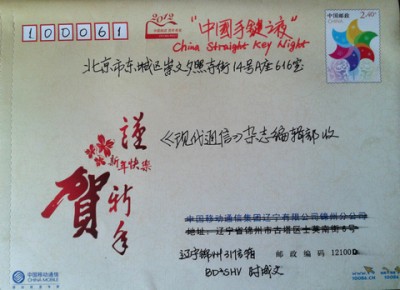 100061
2012
"中國手鍵之夜"
China Straight Key Night
中国邮政 CHINA
2.40元
北京市东城区崇文夕照寺街14号A座616室
《现代通信》杂志编辑部收
谨
新年快乐
賀新年
中国移动通信集团辽宁有限公司锦州分公司
地址:辽宁省锦州市古塔区士英南街6号
辽宁锦州317信箱 邮政编码 121000
BD2SHV 时成文
中国移动通信
CHINA MOBILE
10086.cn